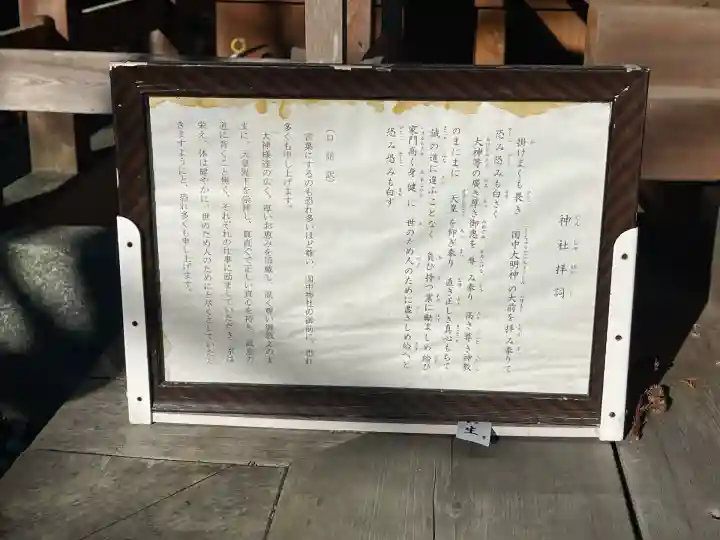 神社拝詞
掛けまくも畏き 国中大明神の大前を拝み奉りて
恐み恐みも白さく
大神等の廣き厚き御恵を 尊み奉り 高き尊き神教
のまにまに 天皇を仰ぎ奉り 直き正しき真心もちて
誠の道に違ふことなく 負ひ持つ業に励ましめ給ひ
家門高く身健に 世のため人のために盡さしめ給へと
恐み恐みも白す
(口語訳)
言葉にするのも恐れ多いほど尊い、国中神社の御前に、恐れ
多くも申し上げます。
大神様達の広く、厚いお恵みを
に、天皇陛下を崇拝し、素直くて正しい真心を持ち、
道に背くこと無く、それぞれの仕事に励ましていただき、家は
栄え、体は健やかに、世のため人のためにと尽くさしていただ
きますようにと、恐れ多くも申し上げます。